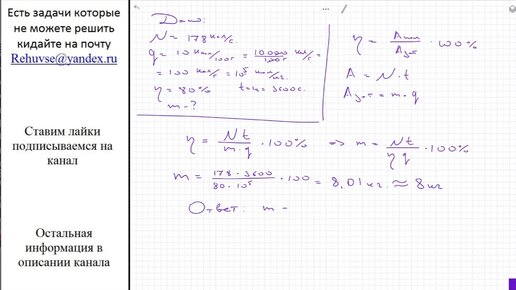 Есть задачи которые
не можете решить
кидайте на почту
Rehuvse@yandex.ru
Ставим лайки
подписываемся на
канал
Остальная
информация в
описании канала
Дано:
N = 178 кал/с.
q = 10 кал/100г = 10000 кал/100г =
= 100 кал/г = 10⁵ кал/кг.
η = 80% t=1ч=3600с.
m-?
η = Aпол/Aзат · 100%
A = N·t
Aзат = m·q
η = Nt/m·q · 100% ⇒ m = Nt/ηq · 100%
m = 178·3600/80·10⁵ · 100 = 8,01 кг. ≈ 8 кг
Ответ: m -